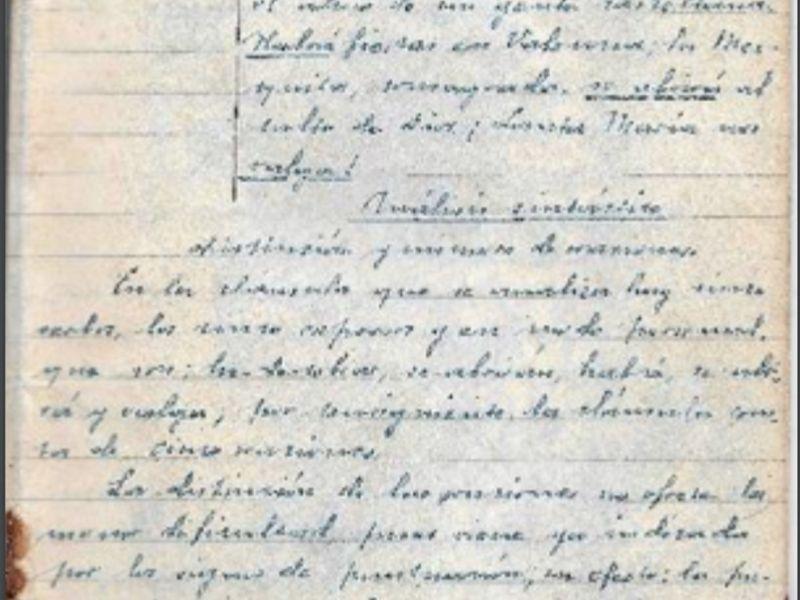 el de un
Habrá fiestas en Valencia; la Mez-
quita, consagrada, se abrirá al
culto de Dios; ¡Santa María nos
valga!
Análisis sintáctico
Distinción y número de oraciones.
En la cláusula que se analiza hay cinco
verbos, los cinco expresos y en modo personal,
que son: se abrirán, habrá, se abri-
rá y valga; por consiguiente, la cláusula cons-
ta de cinco oraciones.
La distinción de las oraciones no ofrece la
menor dificultad, pues viene ya indicada
por los signos de puntuación; en efecto: la pri-